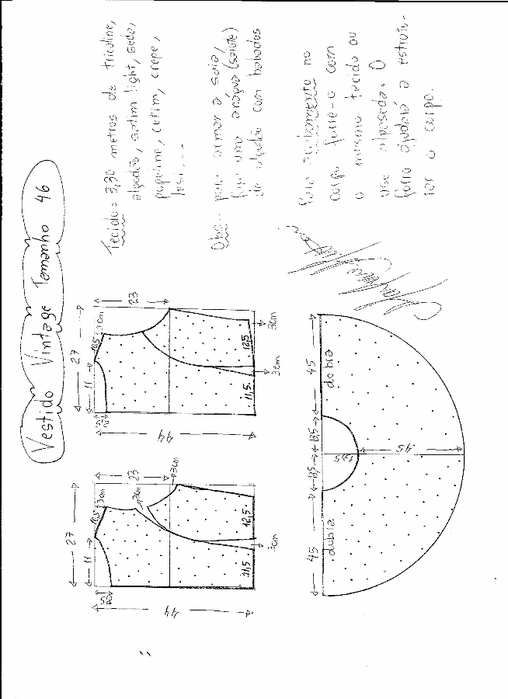 Vestido Vintage Tamanho 46
Tecido = 3,30 metros de tricoline,
algodão, cetim light, seda,
popeline, cetim, crepe,
lesi....
Obs: para armar a saia,
faça uma anágua (saiote)
de algodão com babados
Para acabamento no
corpo forre-o com
o mesmo tecido ou
use alpaseda. O
forro ajudará a estrutu-
rar o corpo.
27
11
23
3cm
44
11,5
12,5
3cm
3cm
27
11
23
3cm
3cm
44
12,5
3cm
45
12,5
12,5
45
dobra
dobra
12,5
45